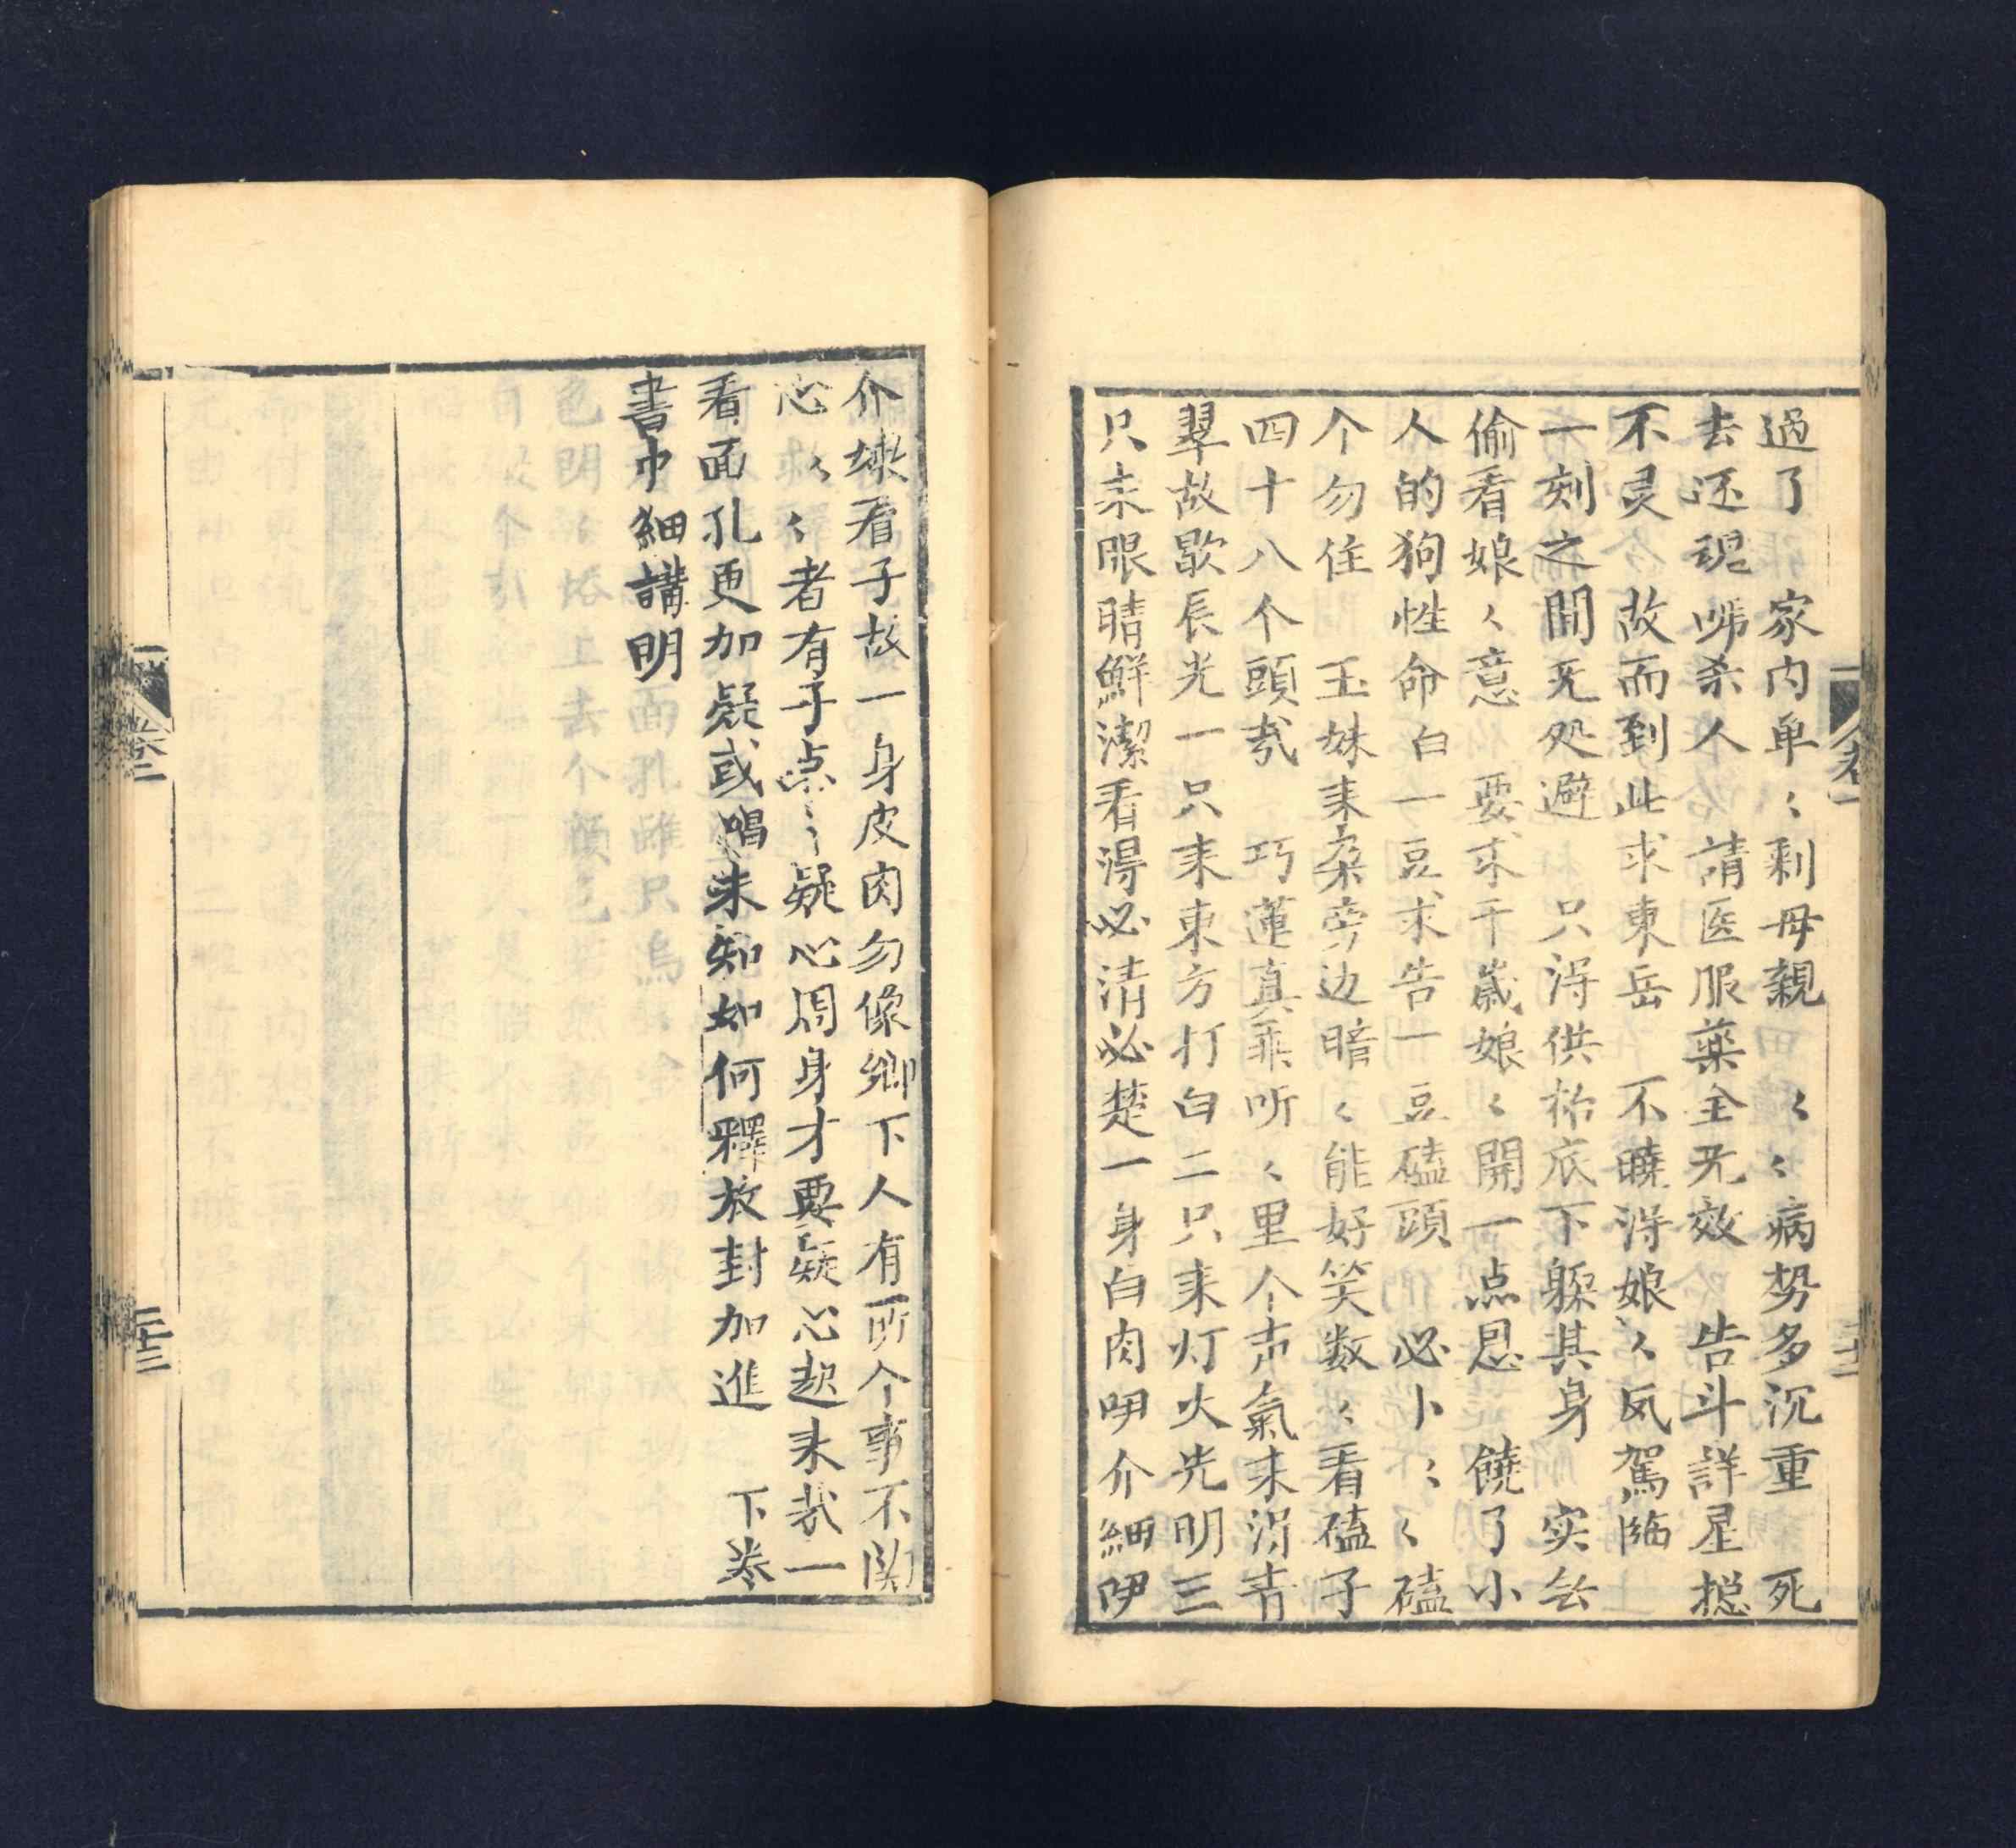 過了　家内单〻剩母親　〻〻病势多沉重　死
去还魂唬杀人　請医服藥全无效　告斗詳星揔
不灵　故而到此求東岳　不曉淂娘〻凤駕臨
一刻之間无処避　只淂供枱底下躲其身　实厺
偷看娘〻意　要求千嵗娘〻開一点恩　饒了小
人的狗性命白一豆求告一豆磕頭　必卜〻〻磕
个勿住　玉妹耒桑旁边暗〻能好笑数〻看磕子
四十八个頭㢤　巧蓮真乖听〻里个声氣耒淂青
翠故歇辰光一只耒東方打白二只耒灯火光明三
只耒眼睛鮮潔看得必清必楚一身白肉呏介細呏
介嫩看子故一身皮肉勿像鄉下人有所个事不関
心〻〻者有子点〻疑心周身才要疑心起耒㢤一
看面孔更加疑或唱未知如何釋放封加進　下巻
書中細講明
卷一
二十二
卷二
二十三